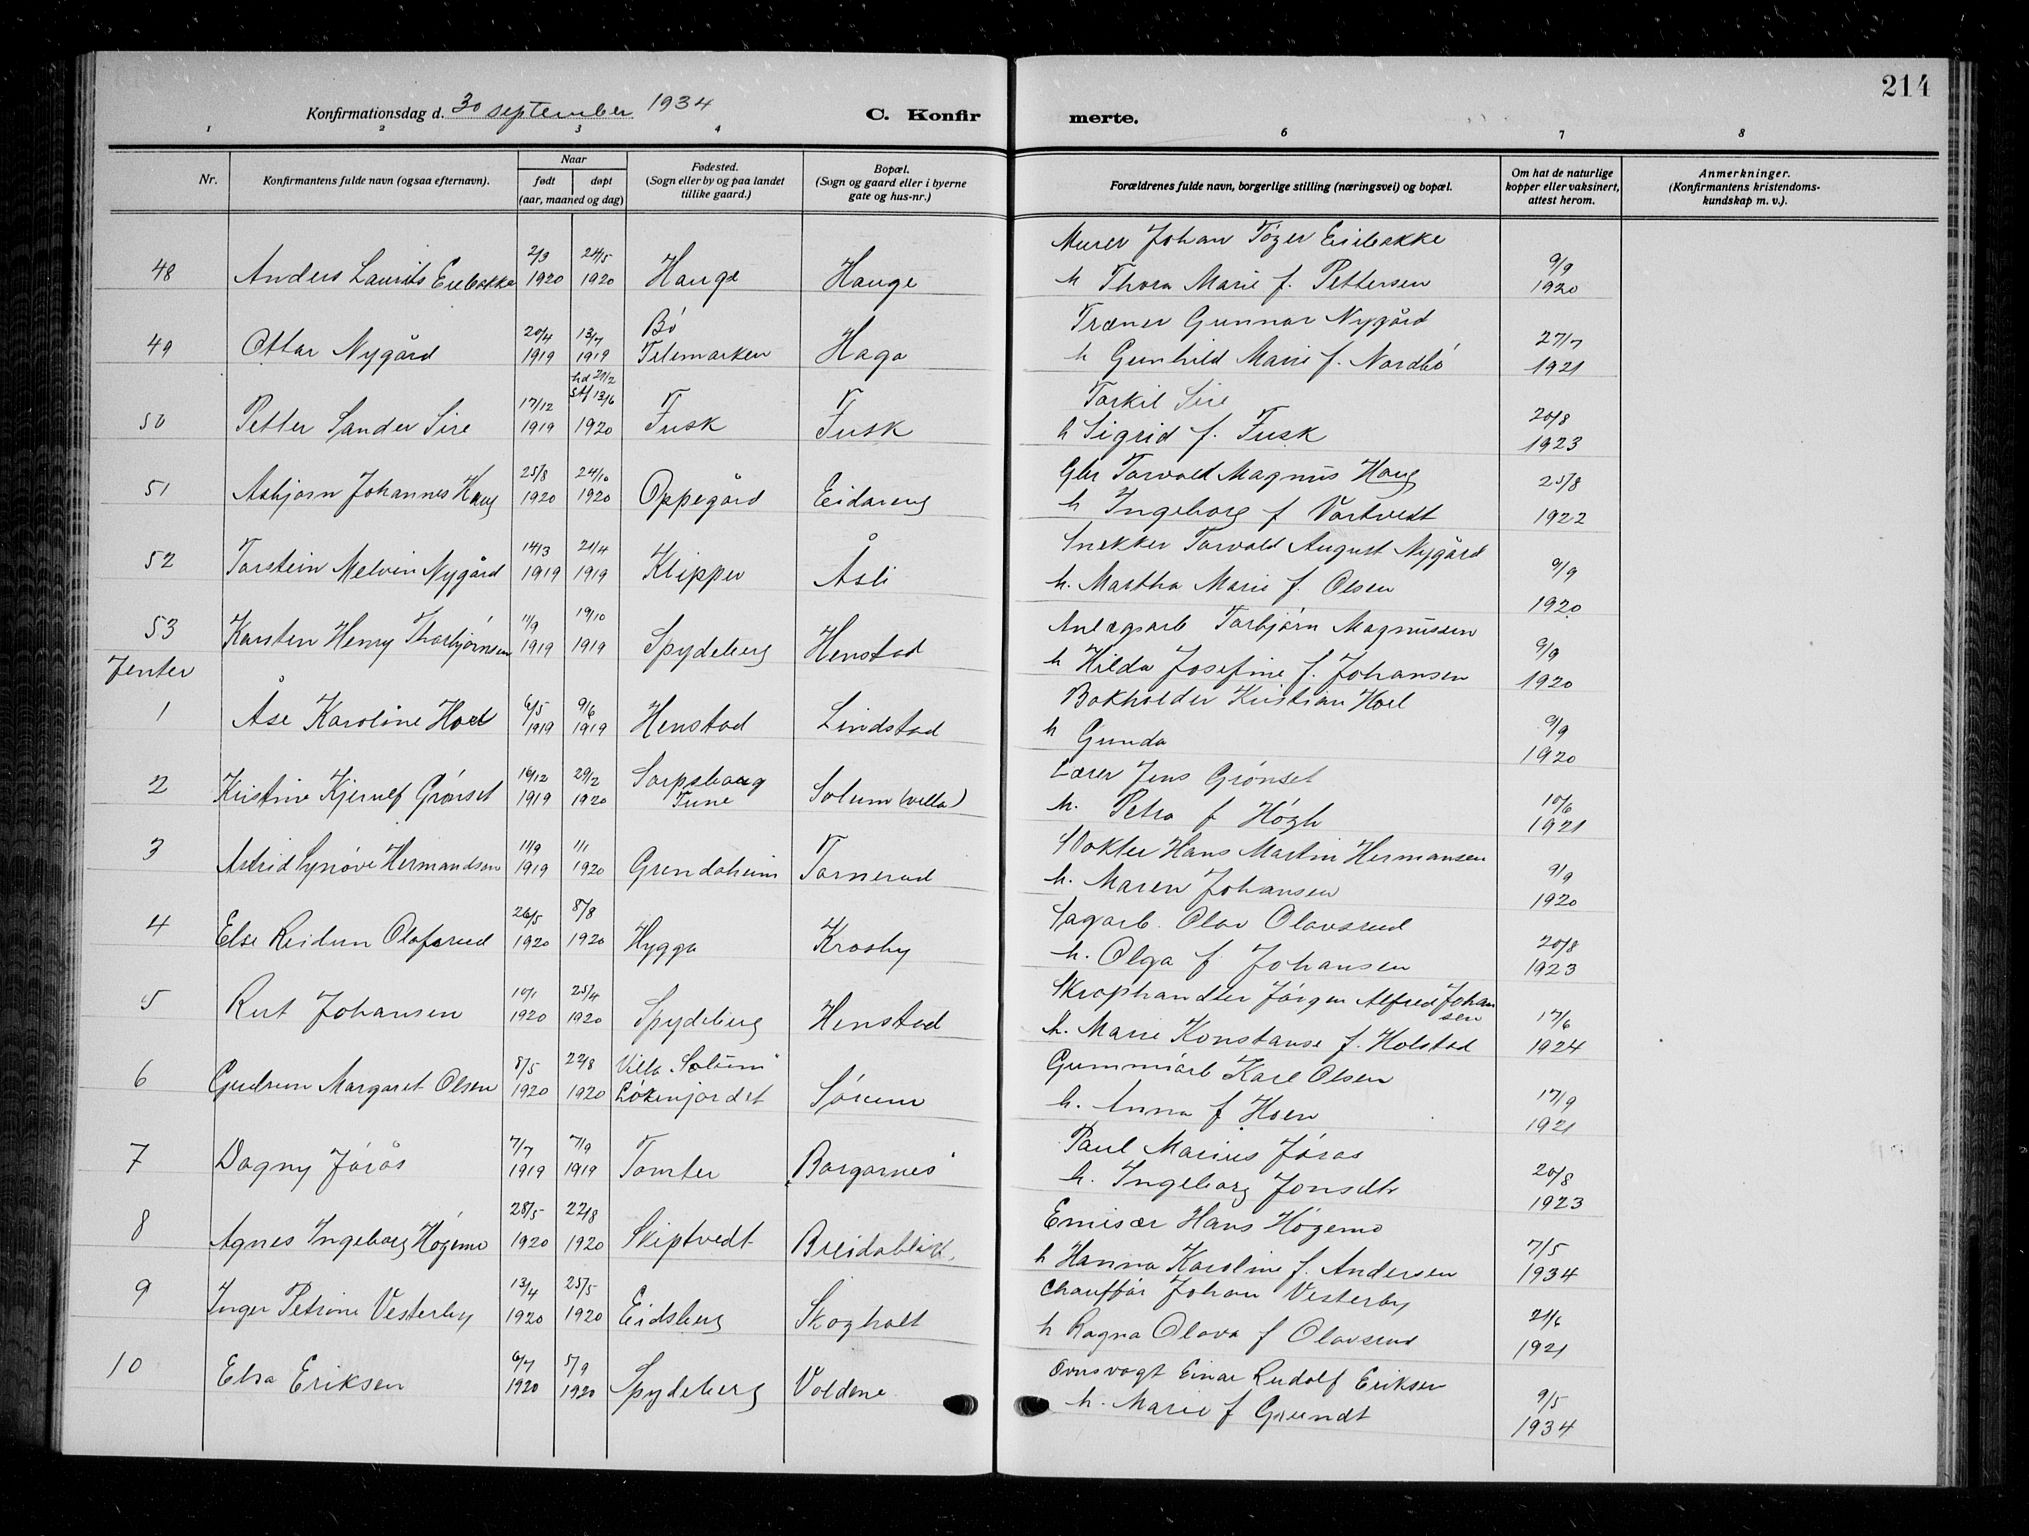 214
Konfirmationsdag d. 30 september 1934
C. Konfirmerte.
1 2 3 4 6 7 8
Nr.
Konfirmantens fulde navn (ogsaa efternavn).
Naar
født døpt
(aar, maaned og dag)
Fødested.
(Sogn eller by og paa landet
tillike gaard.)
Bopæl.
(Sogn og gaard eller i byerne
gate og hus-nr.)
Forældrenes fulde navn, borgerlige stilling (næringsvei) og bopæl.
Om hat de naturlige
kopper eller vaksinert,
attest herom.
Anmerkninger.
(Konfirmantens kristendoms-
kundskap m. v.).
48 Anders Laurits 2/3 1920 24/5 1920 Hauge Hauge
Murer Johan
h Thora Marie f. Pettersen 9/9 1920
49 Ottar Nygård 20/4 1919 13/7 1919 Bö Telemarken Haga
Træner Gunnar Nygård
h Gunhild Marie f. Nordbö 27/7 1921
50 Petter Sander Sire 17/12 1919 hd 29/2 st/ 13/6 1920 Fusk Fusk
Torkil Sire
h Sigrid f. Fusk 20/8 1923
51 Asbjørn Johannes Haug 25/8 1920 24/10 1920 Oppegård Eidareng
Gbr Torvald Magnus Haug
h Ingeborg f Vortvedt 25/8 1922
52 Torstein Melvin Nygård 14/3 1919 21/4 1919 Klipper Åsli
Snekker Torvald August Nygård
h. Martha Marie f. Olsen 9/9 1920
53 Karsten Henry Thorbjörnsen 11/9 1919 19/10 1919 Spydeberg Henstad
Anlægsarb Torbjörn Magnussen
h Hilda Josefine f. Johansen 9/9 1920
Jenter
1 Åse Karoline Hoel 6/5 1919 9/6 1919 Henstad Lindstad
Bokholder Kristian Hoel
h Gunda 9/9 1920
2 Kristine Kjerulf Grönset 16/12 1919 29/2 1920 Sarpsborg Tune Solum (villa)
Lærer Jens Grönset
h. Petra f Högh 10/6 1921
3 Astrid Synöve Hermandsen 11/9 1919 1/1 1920 Grendaheim Tornerud
Vokter Hans Martin Hermansen
h. Maren Johansen 9/9 1920
4 Else Reidun Olafsrud 26/5 1920 8/8 1920 Hygga Krosby
Sagarb. Olav Olavsrud
h. Olga f. Johansen 20/8 1923
5 Rut Johansen 10/1 1920 25/4 1920 Spydeberg Henstad
Skraphandler Jörgen Alfred Johansen
h. Marie Konstanse f. Holstad 17/6 1924
6 Gudrun Margaret Olsen 8/5 1920 22/8 1920 Villa "Solum" Lökenjordet Sörum
Gummiarb Karl Olsen
h. Anna f Hoen 17/9 1921
7 Dagny Jörås 7/7 1919 7/9 1919 Tomter "Borgarnes"
Paul Marius Jörås
h. Ingeborg Jonsdtr 20/8 1923
8 Agnes Ingeborg Högemo 28/5 1920 22/8 1920 Skiptvedt Breidablikk
Emisær Hans Högemo
h Hanna Karoline f. Andersen 7/5 1934
9 Inger Petrine Vesterby 13/4 1920 25/5 1920 Eidsberg Skogholt
Chauffør Johan Vesterby
h Ragna Olava f Olavsrud 21/6 1921
10 Elsa Eriksen 6/7 1920 5/9 1920 Spydeberg Voldene
Ovnsvagt Einar Rudolf Eriksen
h. Marie f Grundt 9/5 1934